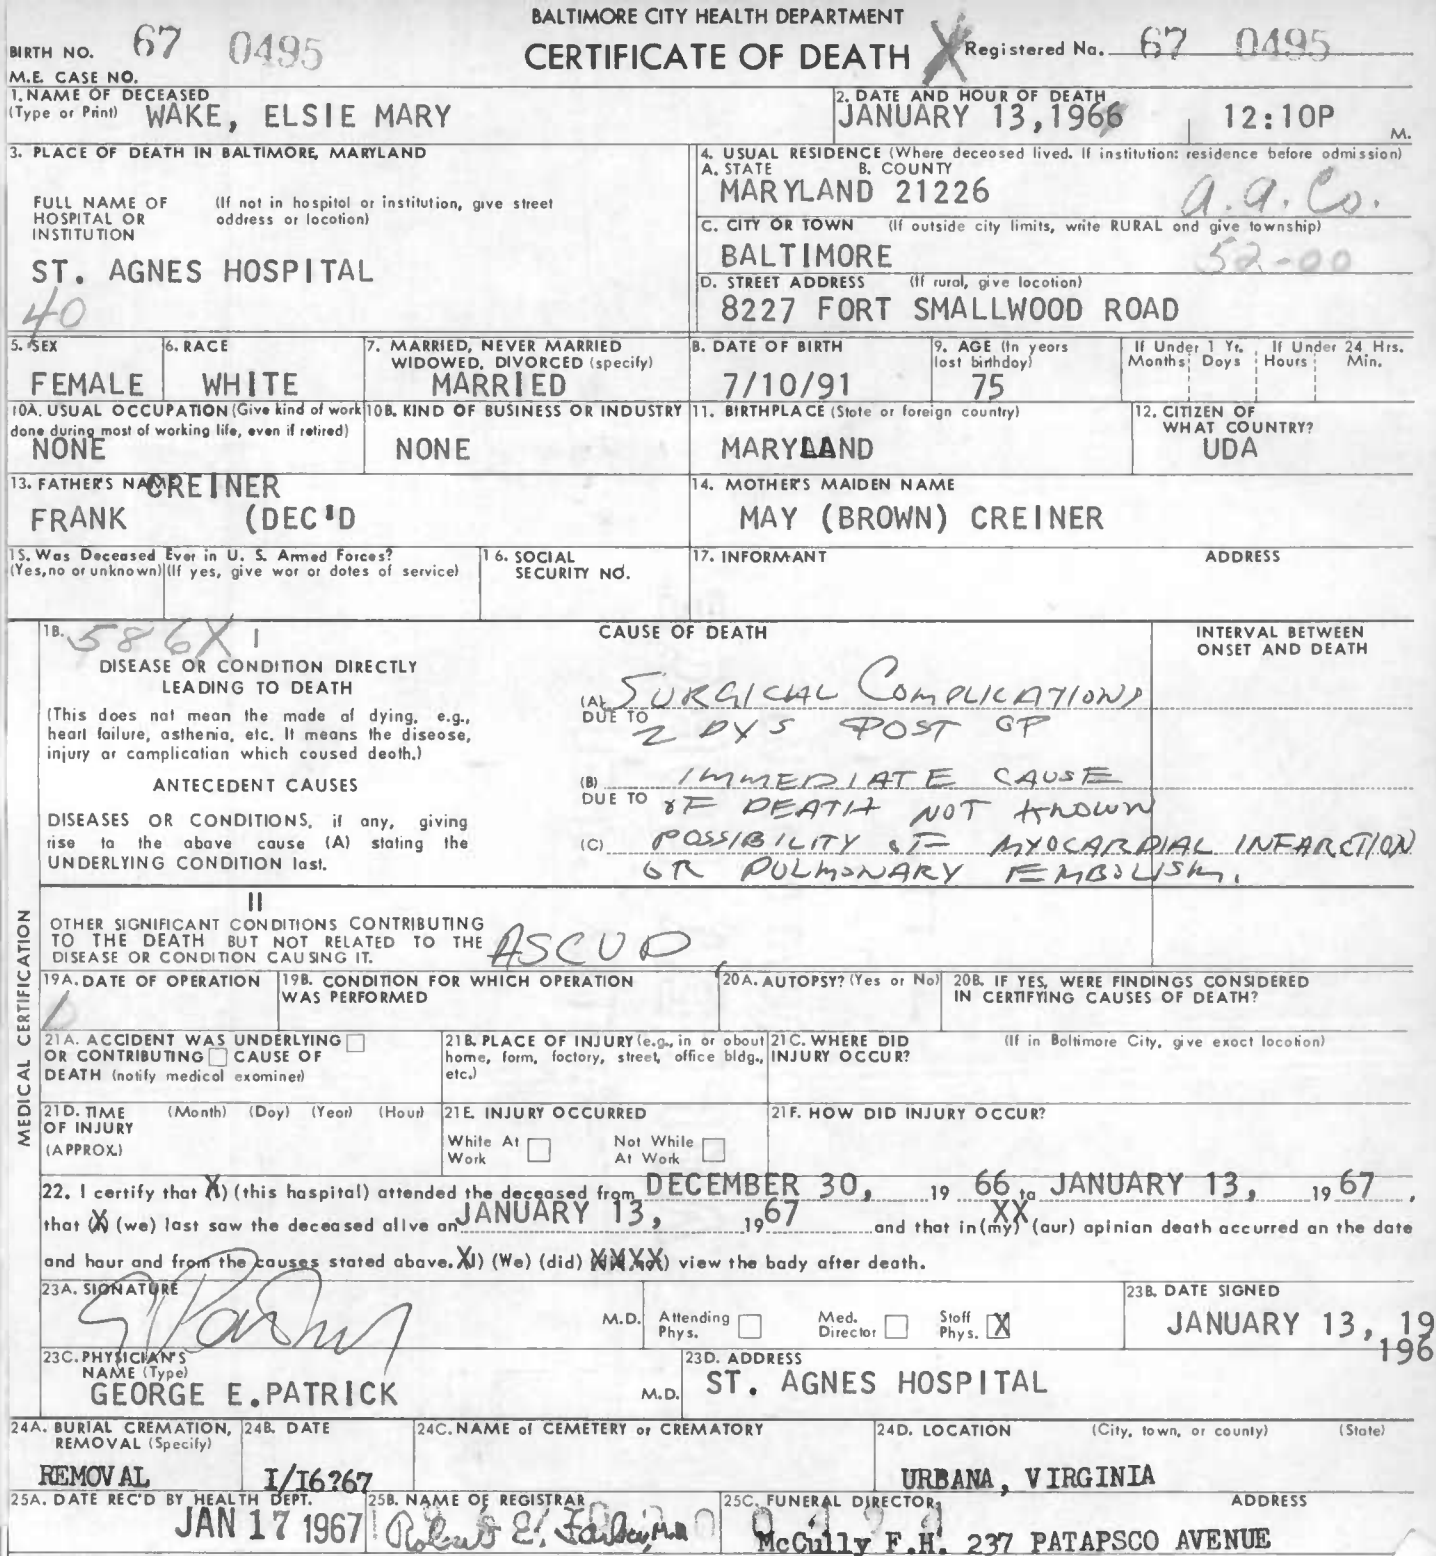 BALTIMORE CITY HEALTH DEPARTMENT
CERTIFICATE OF DEATH
BIRTH NO. 67 0495
Registered No. 67 0495
M.E. CASE NO.
1. NAME OF DECEASED
(Type or Print) WAKE, ELSIE MARY
2. DATE AND HOUR OF DEATH
JANUARY 13,1966 12:10P M.
3. PLACE OF DEATH IN BALTIMORE, MARYLAND
FULL NAME OF HOSPITAL OR INSTITUTION
(If not in hospital or institution, give street address or location)
ST. AGNES HOSPITAL
40
4. USUAL RESIDENCE (Where deceased lived. If institution: residence before admission)
A. STATE B. COUNTY
MARYLAND 21226 A.A. Co.
C. CITY OR TOWN (If outside city limits, write RURAL and give township)
BALTIMORE 52-00
D. STREET ADDRESS (If rural, give location)
8227 FORT SMALLWOOD ROAD
5. SEX
FEMALE
6. RACE
WHITE
7. MARRIED, NEVER MARRIED
WIDOWED, DIVORCED (specify)
MARRIED
8. DATE OF BIRTH
7/10/91
9. AGE (In years
last birthday)
75
If Under 1 Yr.
Months Days
If Under 24 Hrs.
Hours Min.
10A. USUAL OCCUPATION (Give kind of work
done during most of working life, even if retired)
NONE
10B. KIND OF BUSINESS OR INDUSTRY
NONE
11. BIRTHPLACE (State or foreign country)
MARYLAND
12. CITIZEN OF
WHAT COUNTRY?
UDA
13. FATHER'S NAME CREINER
FRANK (DEC'D
14. MOTHER'S MAIDEN NAME
MAY (BROWN) CREINER
15. Was Deceased Ever in U. S. Armed Forces?
(Yes, no or unknown) (If yes, give war or dates of service)
16. SOCIAL
SECURITY NO.
17. INFORMANT ADDRESS
MEDICAL CERTIFICATION
18. 586X I
CAUSE OF DEATH
INTERVAL BETWEEN
ONSET AND DEATH
DISEASE OR CONDITION DIRECTLY
LEADING TO DEATH
(This does not mean the mode of dying, e.g.,
heart failure, asthenia, etc. It means the disease,
injury or complication which caused death.)
ANTECEDENT CAUSES
DISEASES OR CONDITIONS, if any, giving
rise to the above cause (A) stating the
UNDERLYING CONDITION last.
(A) SURGICAL COMPLICATIONS
DUE TO 2 DYS POST OP
(B) IMMEDIATE CAUSE
DUE TO OF DEATH NOT KNOWN
(C) POSSIBILITY OF MYOCARDIAL INFARCTION
OR PULMONARY EMBOLISM.
II
OTHER SIGNIFICANT CONDITIONS CONTRIBUTING
TO THE DEATH BUT NOT RELATED TO THE
DISEASE OR CONDITION CAUSING IT.
ASCVD
19A. DATE OF OPERATION
19B. CONDITION FOR WHICH OPERATION
WAS PERFORMED
20A. AUTOPSY? (Yes or No)
20B. IF YES, WERE FINDINGS CONSIDERED
IN CERTIFYING CAUSES OF DEATH?
21A. ACCIDENT WAS UNDERLYING
OR CONTRIBUTING CAUSE OF
DEATH (notify medical examiner)
21B. PLACE OF INJURY (e.g., in or about
home, farm, factory, street, office bldg.,
etc.)
21C. WHERE DID
INJURY OCCUR?
(If in Baltimore City, give exact location)
21D. TIME (Month) (Day) (Year) (Hour)
OF INJURY
(APPROX.)
21E. INJURY OCCURRED
While At Work
Not While At Work
21F. HOW DID INJURY OCCUR?
22. I certify that X) (this hospital) attended the deceased from DECEMBER 30, 19 66 to JANUARY 13, 19 67 ,
that (X (we) last saw the deceased alive on JANUARY 13, 19 67 and that in (my) XX (our) opinion death accurred on the date
and hour and from the causes stated above. XI) (We) (did) XXXX) view the body after death.
23A. SIGNATURE
M.D.
Attending Phys.
Med. Director
Staff Phys. X
23B. DATE SIGNED
JANUARY 13, 19
196
23C. PHYSICIAN'S
NAME (Type)
GEORGE E.PATRICK M.D.
23D. ADDRESS
ST. AGNES HOSPITAL
24A. BURIAL CREMATION,
REMOVAL (Specify)
REMOVAL
24B. DATE
I/I6?67
24C. NAME of CEMETERY or CREMATORY
24D. LOCATION (City, town, or county) (State)
URBANA, VIRGINIA
25A. DATE REC'D BY HEALTH DEPT.
JAN 17 1967
25B. NAME OF REGISTRAR
Robert E. Farber, M.D.
25C. FUNERAL DIRECTOR ADDRESS
McCully F.H. 237 PATAPSCO AVENUE